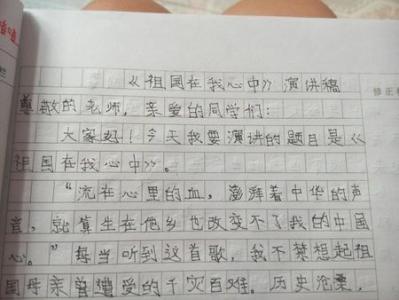 《祖国在我心中》演讲稿
尊敬的老师,亲爱的同学们:
大家好!今天我要演讲的题目是《
祖国在我心中》。
"流在心里的血,澎湃着中华的声
音,就算生在他乡也改变不了我的中国
心。"每当听到这首歌,我不禁想起祖
国母亲曾遭爱的千灾百难,历史沧桑,